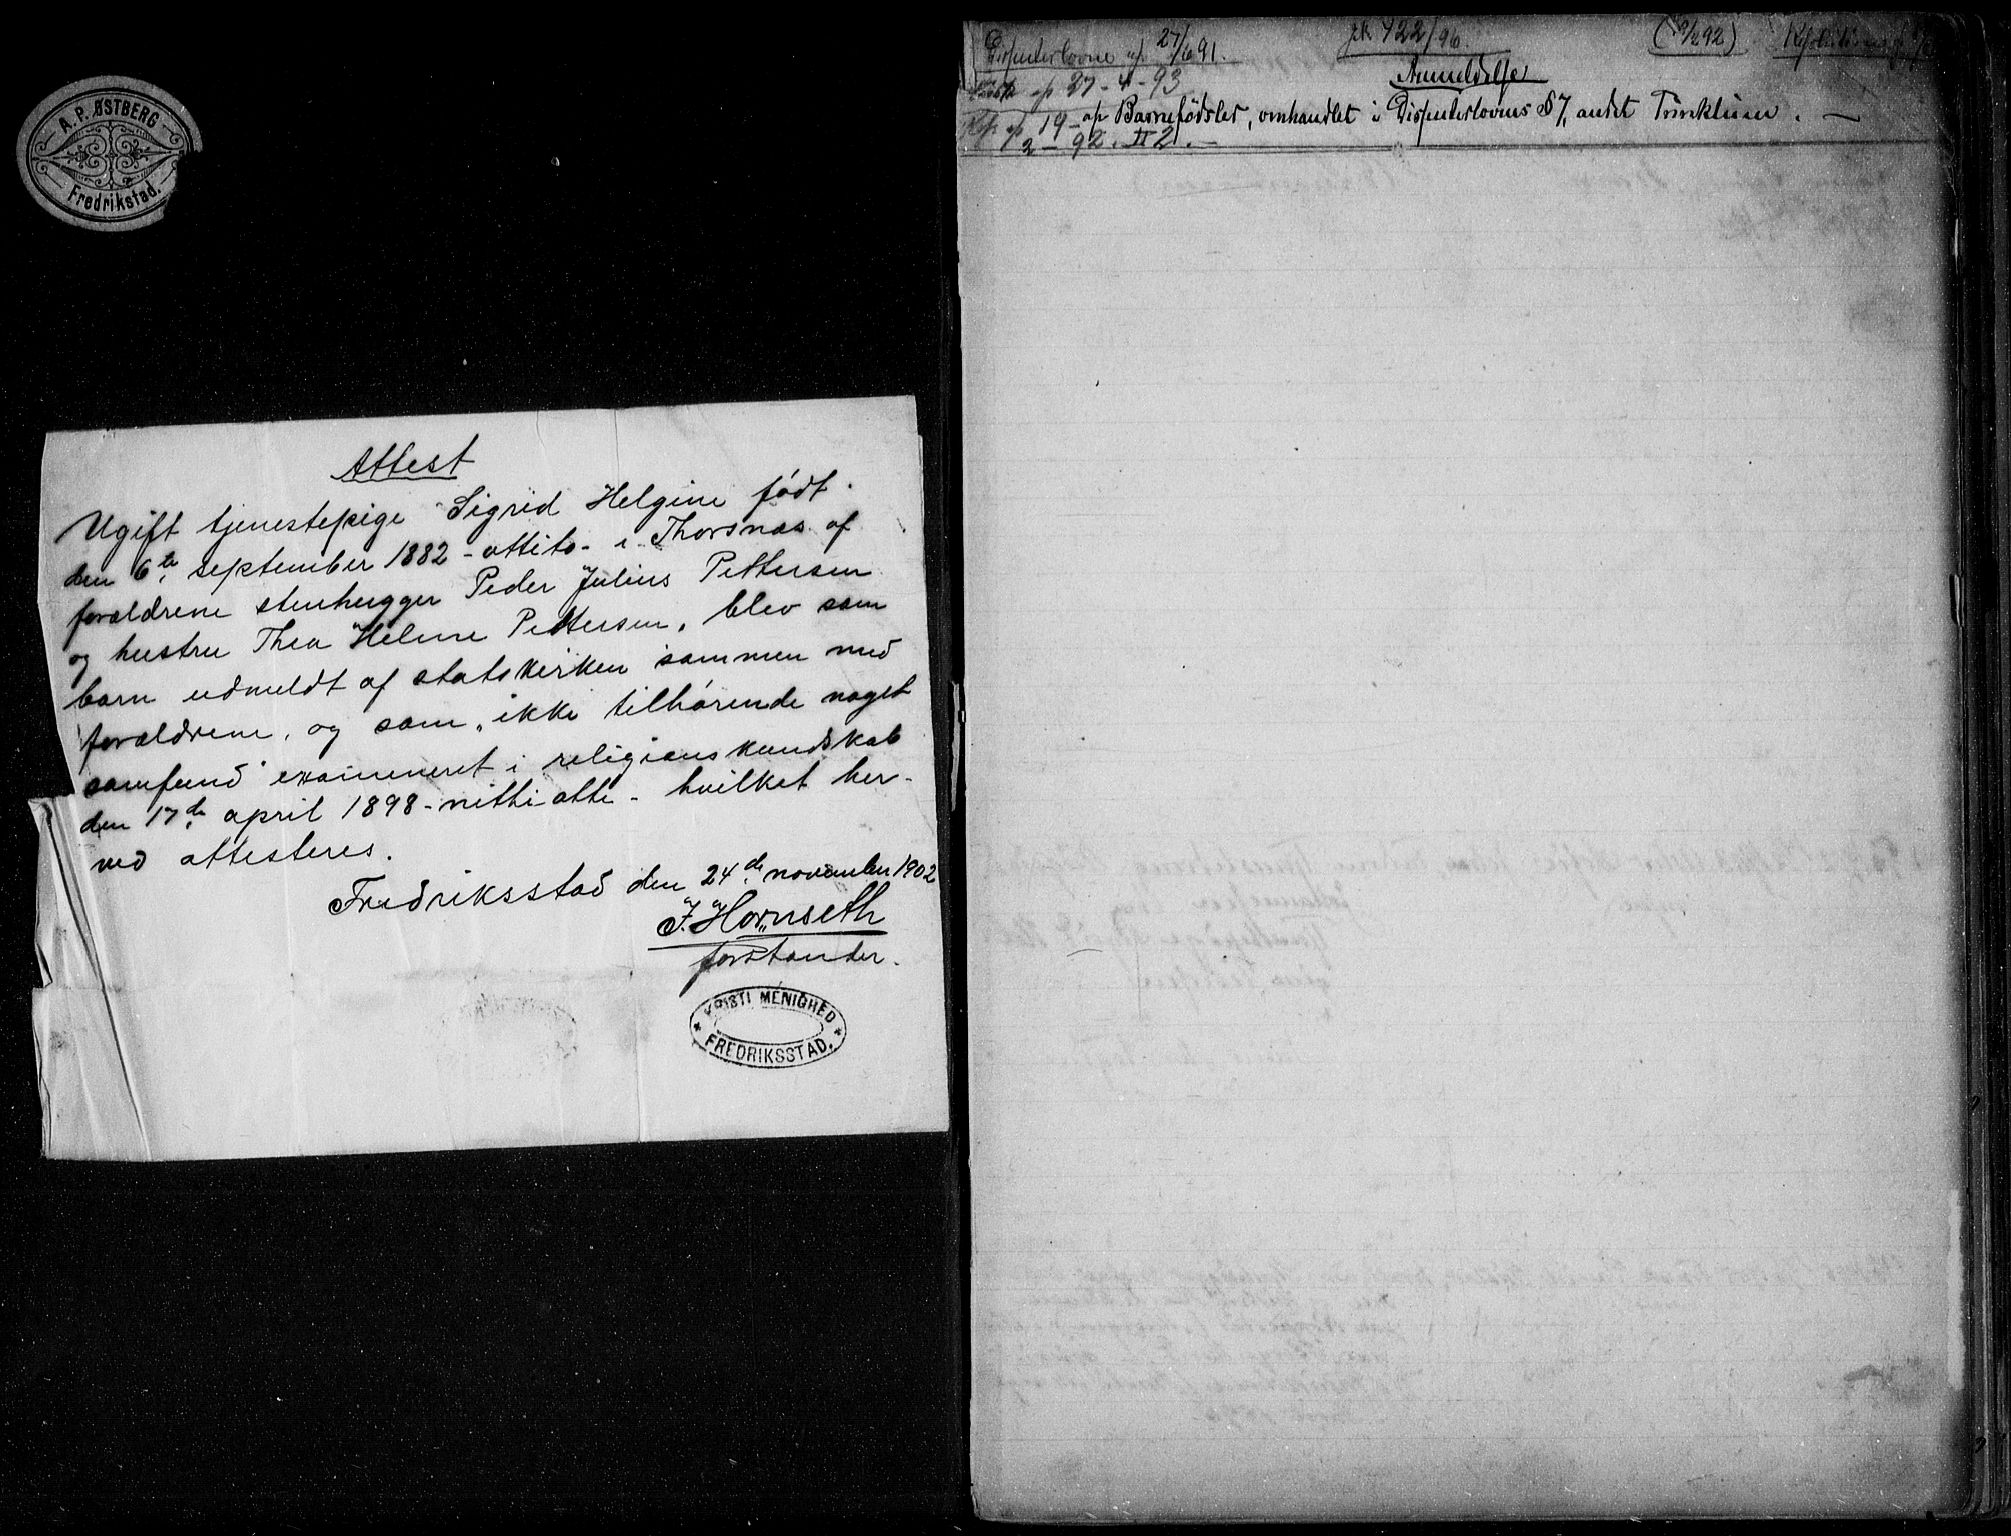 A. P. ØSTBERG
Fredrikstad.
Attest
Ugift tjenestepige Sigrid Helgine født
den 6te september 1882 - ottito - i Thorsnæs af
forældrene stenhugger Peder Julius Pettersen
og hustru Thea Helene Pettersen, blev som
barn udmeldt af statskirken sammen med
forældrene, og som "ikke tilhørende noget
samfund" examineret i religionskundskab
den 17de april 1898 - nitti otte - hvilket her-
ved attesteres.
Fredriksstad den 24de november 1902
J. Hornseth
forstander.
KRISTI MENIGHED
FREDRIKSSTAD.
Dissenterlovene af 27/6 91.
jk. 722/96.
Anmeldelse
af 27-4-93
af Barnefødsler, omhandlet i Dissenterlovens § 7, andet
19-
2-92. II 2.